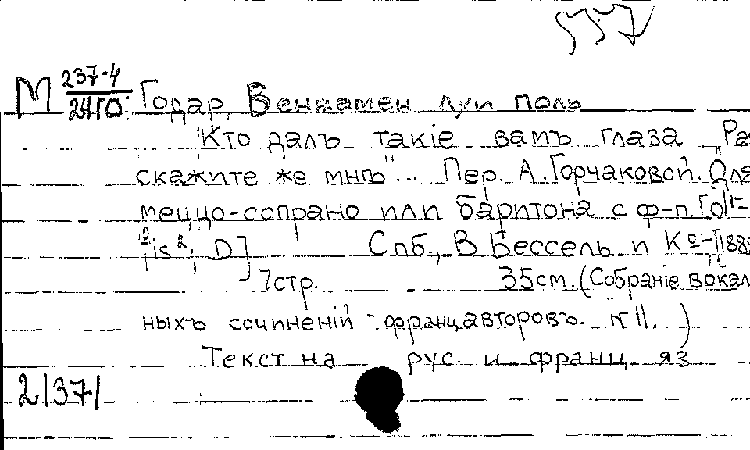 557
М 237-4/2410 Годар, Бенжамен Луи Поль
"Кто далъ такіе вамъ глаза, Ра
скажите же мнѣ"... Пер. А. Горчаковой. Для
меццо-сопрано или баритона с ф-п.
D] Спб., В. Бессель и Кº
7 стр. 35 см. (Собраніе вокал
ныхъ сочиненій франц. авторовъ. №11.)
Текст на рус и франц. яз
21371